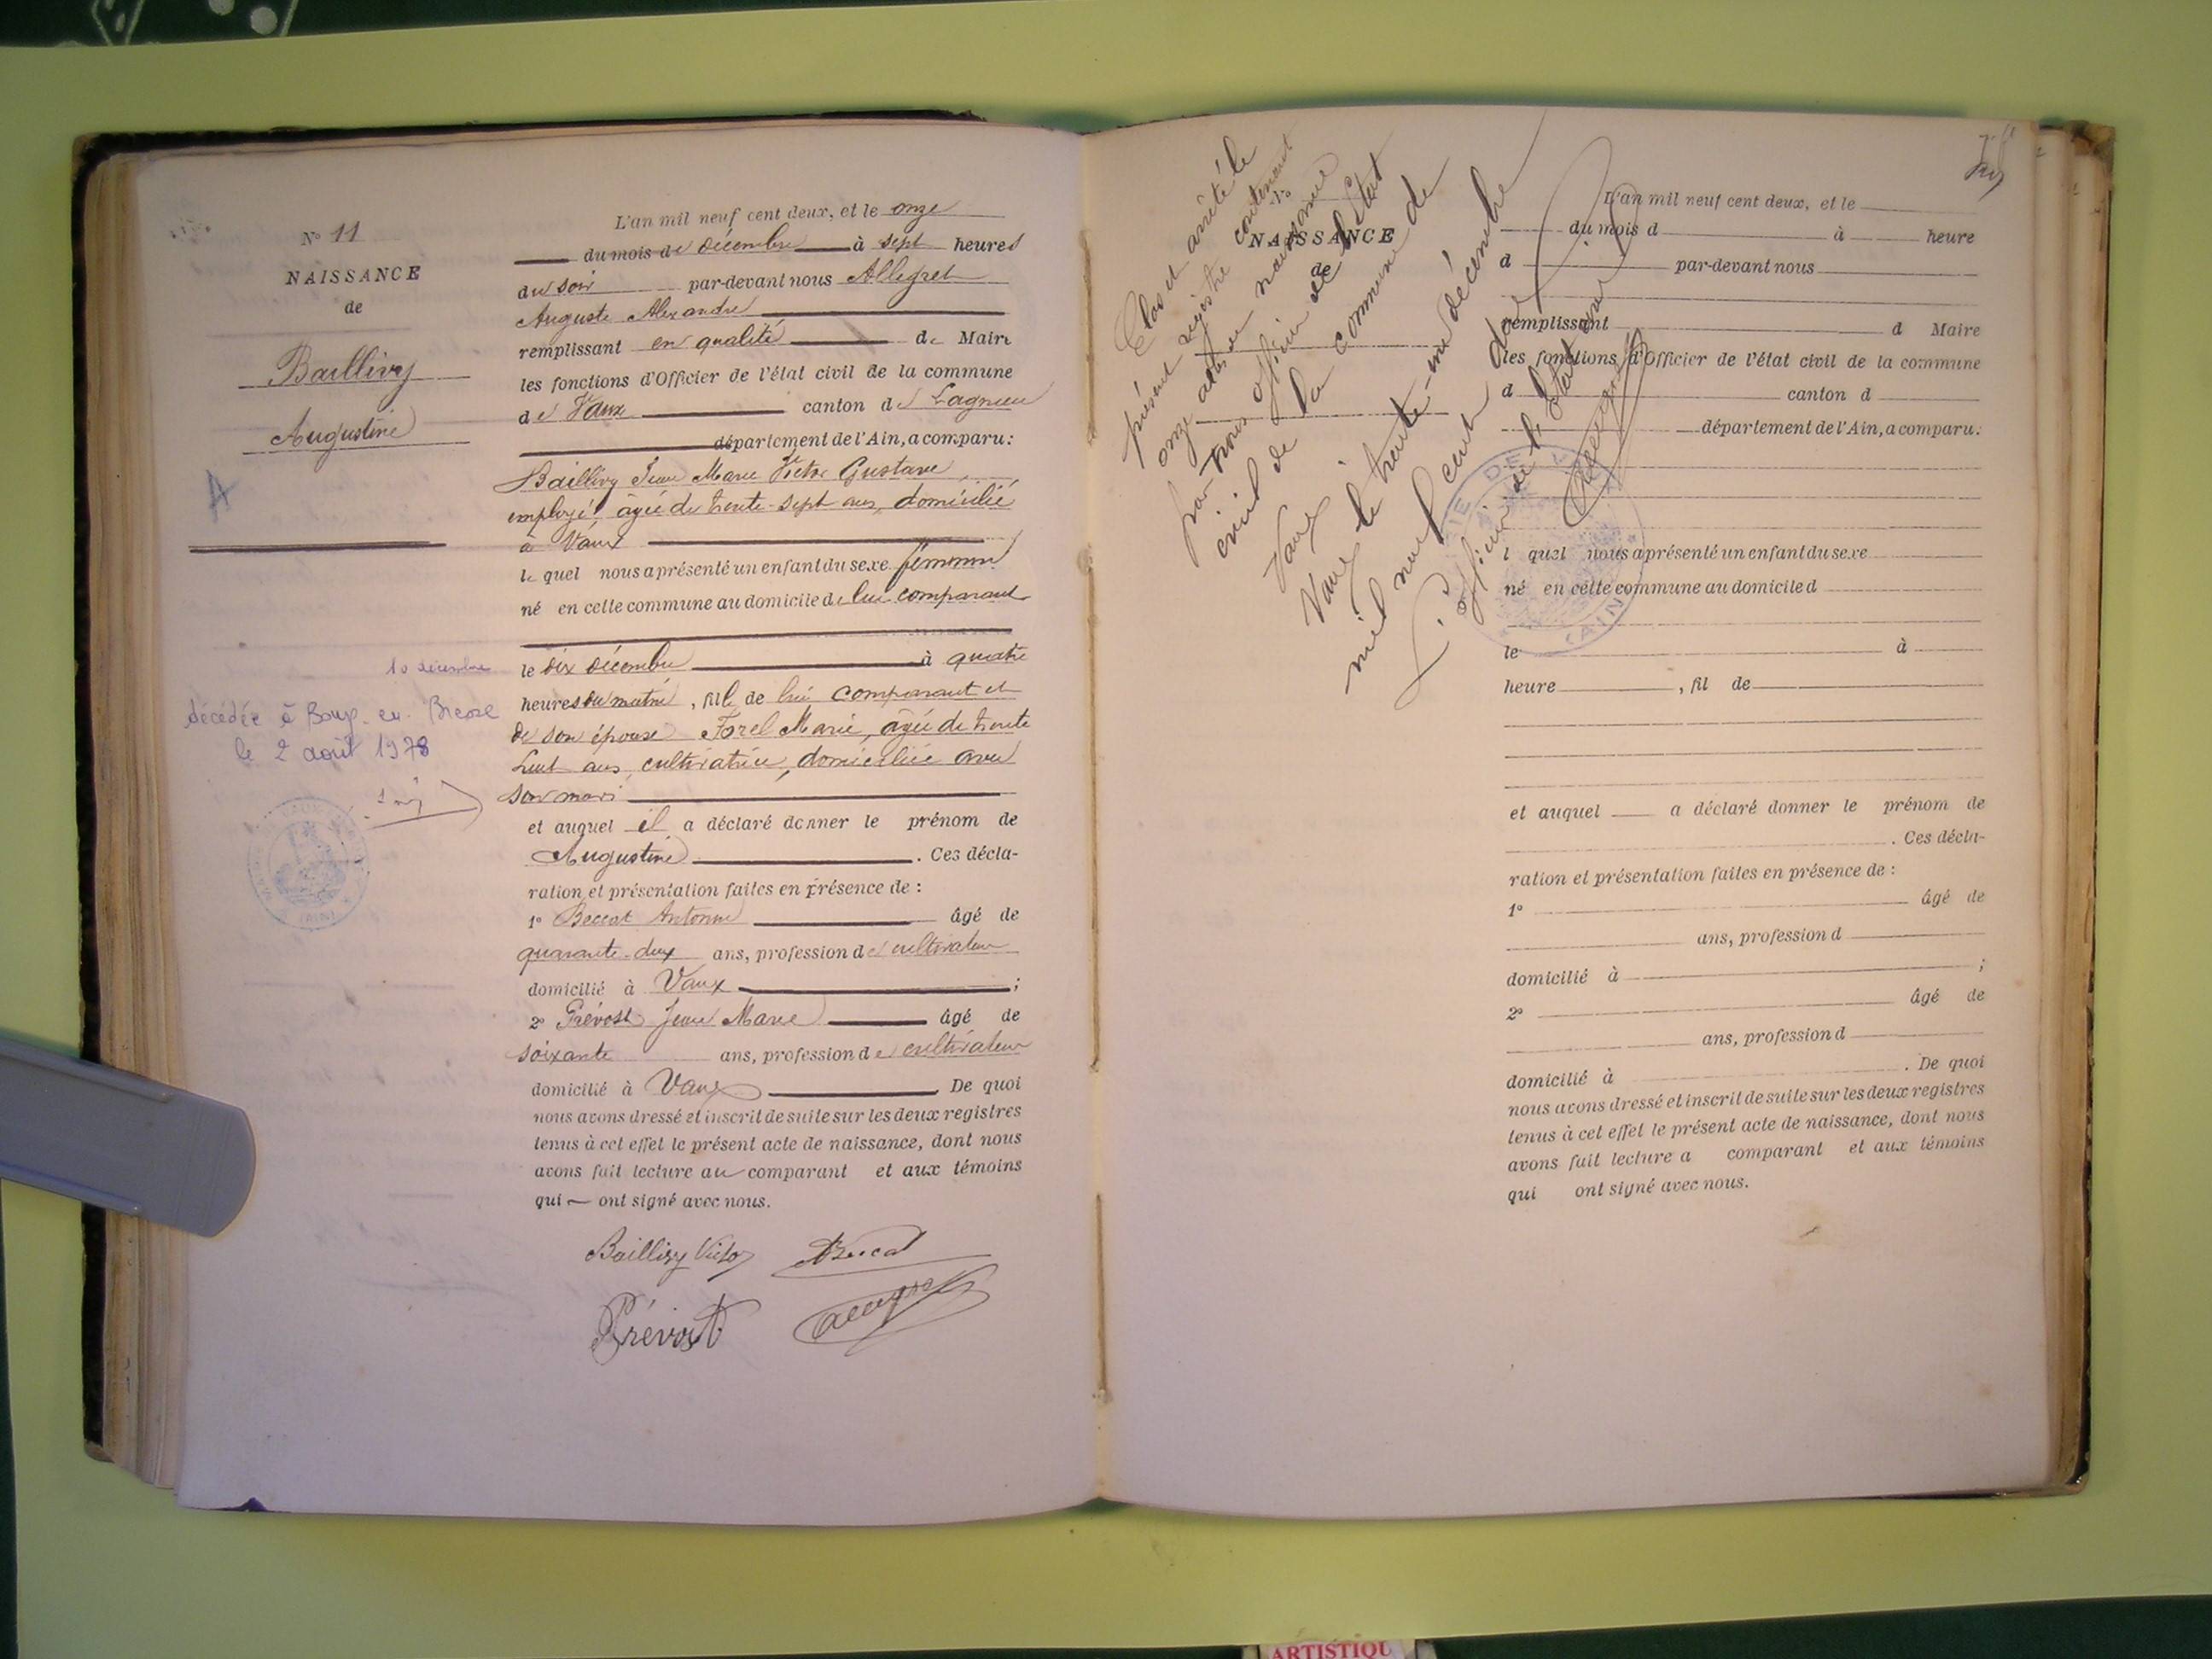 N° 11
NAISSANCE
de
Baillivy
Augustine
A
10 décembre
décédée à Bourg-en-Bresse
le 2 août 1978
L'an mil neuf cent deux, et le onze
du mois de décembre à sept heures
du soir par-devant nous Allegret
Auguste Alexandre
remplissant en qualité de Maire
les fonctions d'Officier de l'état civil de la commune
de Vaux canton de Lagnieu
département de l'Ain, a comparu:
Baillivy Jean Marie Victor Gustave
employé, âgé de trente-sept ans, domicilié
à Vaux
le quel nous a présenté un enfant du sexe féminin
né en cette commune au domicile de lui comparant
le dix décembre à quatre
heures du matin, fille de lui comparant et
de son épouse Forel Marie, âgée de trente
huit ans, cultivatrice, domiciliée avec
son mari
et auquel il a déclaré donner le prénom de
Augustine. Ces décla-
ration et présentation faites en présence de :
1° Beccat Antoine âgé de
quarante-deux ans, profession de cultivateur
domicilié à Vaux ;
2° Prévost Jean Marie âgé de
soixante ans, profession de cultivateur
domicilié à Vaux. De quoi
nous avons dressé et inscrit de suite sur les deux registres
tenus à cet effet le présent acte de naissance, dont nous
avons fait lecture au comparant et aux témoins
qui ont signé avec nous.
Baillivy Victor
Prévost
Clos et arrêté le
présent registre contenant
onze actes de naissance
par nous officier de l'état
civil de la commune de
Vaux
Vaux le trente-un décembre
mil neuf cent deux
L'officier de l'état civil
N°
NAISSANCE
de
MAIRIE DE
(AIN)
L'an mil neuf cent deux, et le
du mois d à heure
d par-devant nous
remplissant d Maire
les fonctions d'Officier de l'état civil de la commune
d canton d
département de l'Ain, a comparu:
l quel nous a présenté un enfant du sexe
né en cette commune au domicile d
le à
heure , fil de
et auquel a déclaré donner le prénom de
. Ces décla-
ration et présentation faites en présence de :
1° âgé de
ans, profession d
domicilié à ;
2° âgé de
ans, profession d
domicilié à . De quoi
nous avons dressé et inscrit de suite sur les deux registres
tenus à cet effet le présent acte de naissance, dont nous
avons fait lecture a comparant et aux témoins
qui ont signé avec nous.
ARTISTIQU